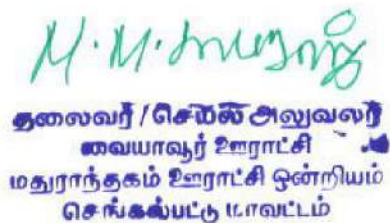 M. M. காமராஜ்
தலைவர் / செயல் அலுவலர்
வையாவூர் ஊராட்சி
மதுராந்தகம் ஊராட்சி ஒன்றியம்
செங்கல்பட்டு மாவட்டம்